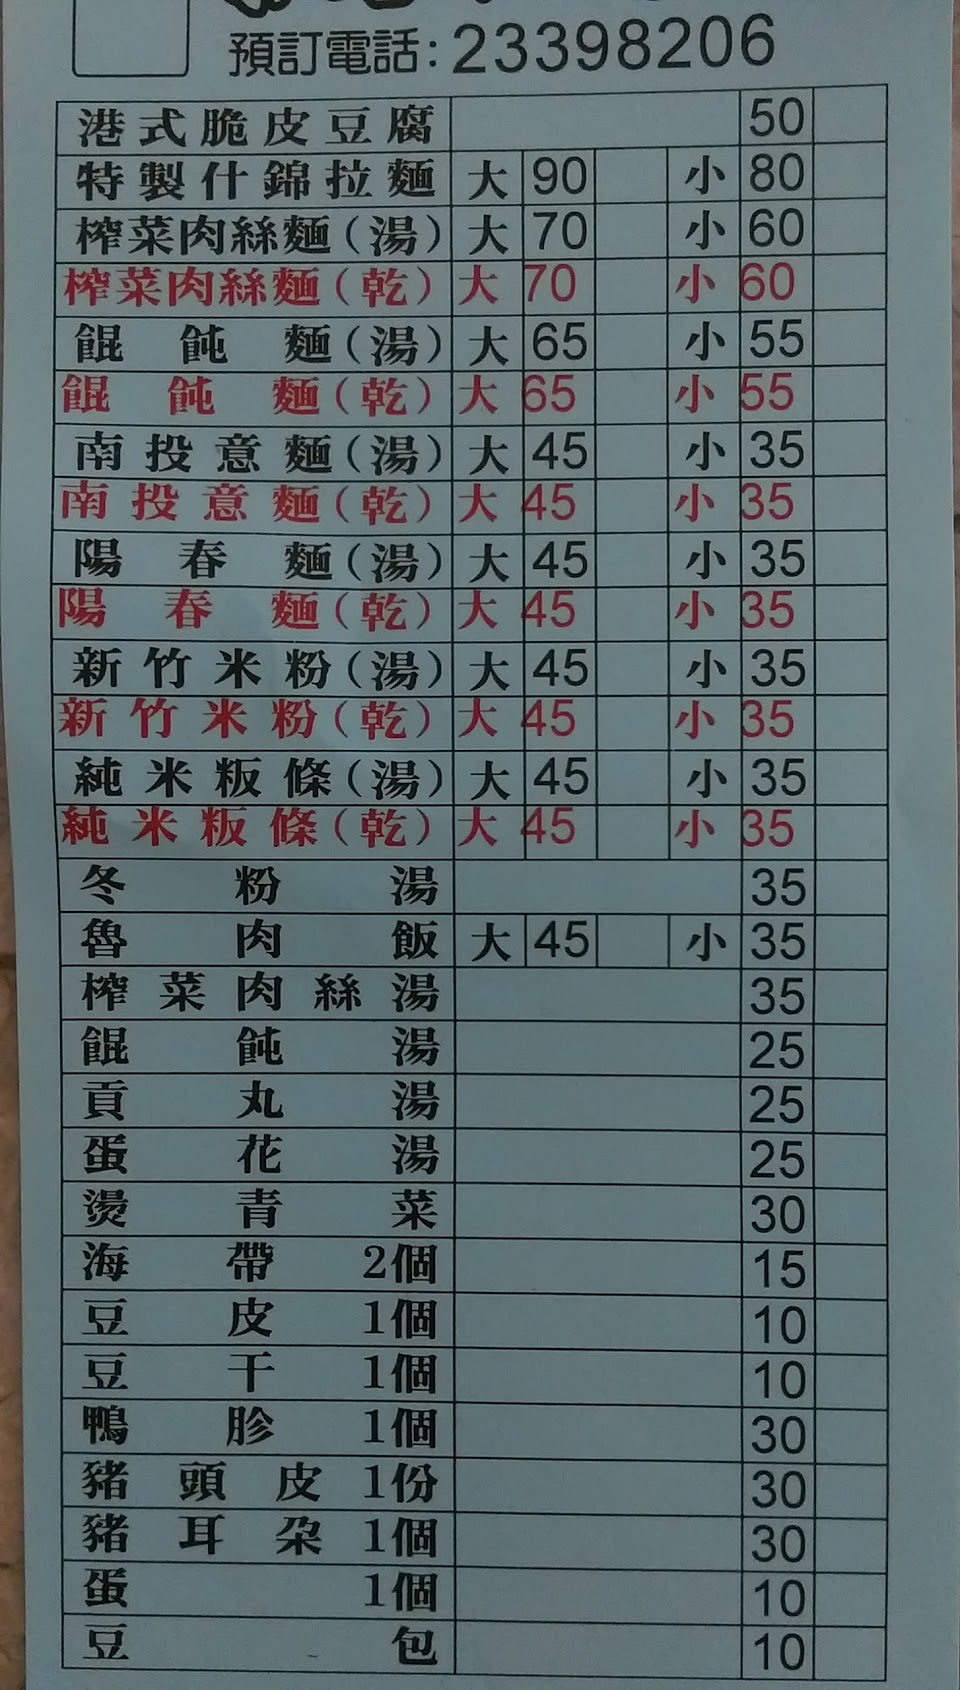 預訂電話:23398206
港式脆皮豆腐 50
特製什錦拉麵 大 90 小 80
榨菜肉絲麵(湯) 大 70 小 60
榨菜肉絲麵(乾) 大 70 小 60
餛飩麵(湯) 大 65 小 55
餛飩麵(乾) 大 65 小 55
南投意麵(湯) 大 45 小 35
南投意麵(乾) 大 45 小 35
陽春麵(湯) 大 45 小 35
陽春麵(乾) 大 45 小 35
新竹米粉(湯) 大 45 小 35
新竹米粉(乾) 大 45 小 35
純米粄條(湯) 大 45 小 35
純米粄條(乾) 大 45 小 35
冬粉湯 35
魯肉飯 大 45 小 35
榨菜肉絲湯 35
餛飩湯 25
貢丸湯 25
蛋花湯 25
燙青菜 30
海帶2個 15
豆皮1個 10
豆干1個 10
鴨胗1個 30
豬頭皮1份 30
豬耳朵1個 30
蛋1個 10
豆包 10